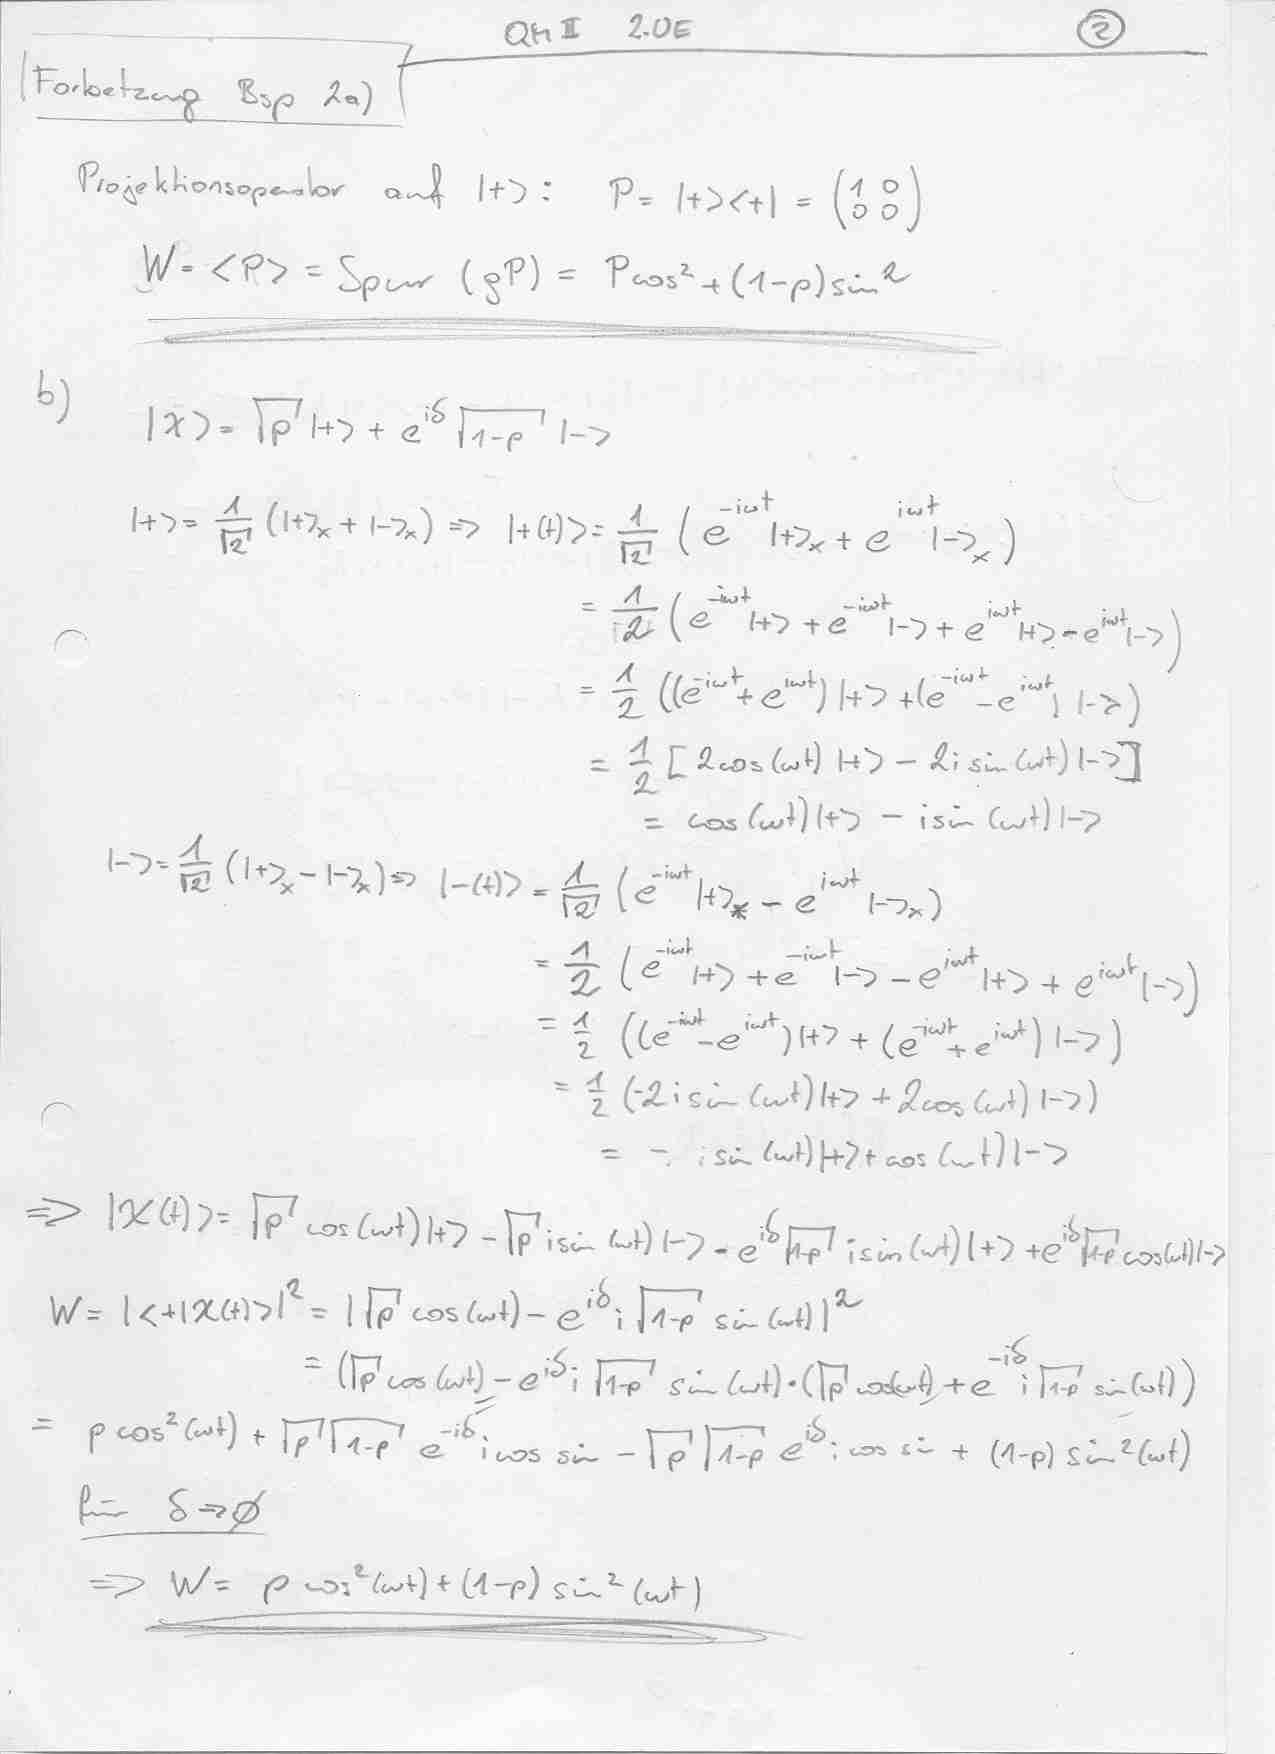 QM II 2.UE 2
Fortsetzung Bsp 2a)
Projektionsoperator auf |+>: P = |+><+| = (1 0 0 0)
W = <P> = Spur (ρP) = P cos² + (1-p) sin²
b)
|χ> = √p |+> + e^{iδ} √(1-p) |->
|+> = 1/√2 (|+>ₓ + |->ₓ) => |+(t)> = 1/√2 (e^{-iωt} |+>ₓ + e^{iωt} |->ₓ)
= 1/2 (e^{-iωt} |+> + e^{-iωt} |-> + e^{iωt} |+> - e^{iωt} |->)
= 1/2 ((e^{-iωt} + e^{iωt}) |+> + (e^{-iωt} - e^{iωt}) |->)
= 1/2 [2cos(ωt) |+> - 2i sin(ωt) |->]
= cos(ωt) |+> - i sin(ωt) |->
|-> = 1/√2 (|+>ₓ - |->ₓ) => |-(t)> = 1/√2 (e^{-iωt} |+>ₓ - e^{iωt} |->ₓ)
= 1/2 (e^{-iωt} |+> + e^{-iωt} |-> - e^{iωt} |+> + e^{iωt} |->)
= 1/2 ((e^{-iωt} - e^{iωt}) |+> + (e^{-iωt} + e^{iωt}) |->)
= 1/2 (-2i sin(ωt) |+> + 2cos(ωt) |->)
= - i sin(ωt) |+> + cos(ωt) |->
=> |χ(t)> = √p cos(ωt) |+> - √p i sin(ωt) |-> - e^{iδ} √(1-p) i sin(ωt) |+> + e^{iδ} √(1-p) cos(ωt) |->
W = |<+|χ(t)>|² = |√p cos(ωt) - e^{iδ} i √(1-p) sin(ωt)|²
= (√p cos(ωt) - e^{iδ} i √(1-p) sin(ωt) · (√p cos(ωt) + e^{-iδ} i √(1-p) sin(ωt))
= p cos²(ωt) + √p √(1-p) e^{-iδ} i cos sin - √p √(1-p) e^{iδ} i cos sin + (1-p) sin²(ωt)
für δ => ∅
=> W = p cos²(ωt) + (1-p) sin²(ωt)